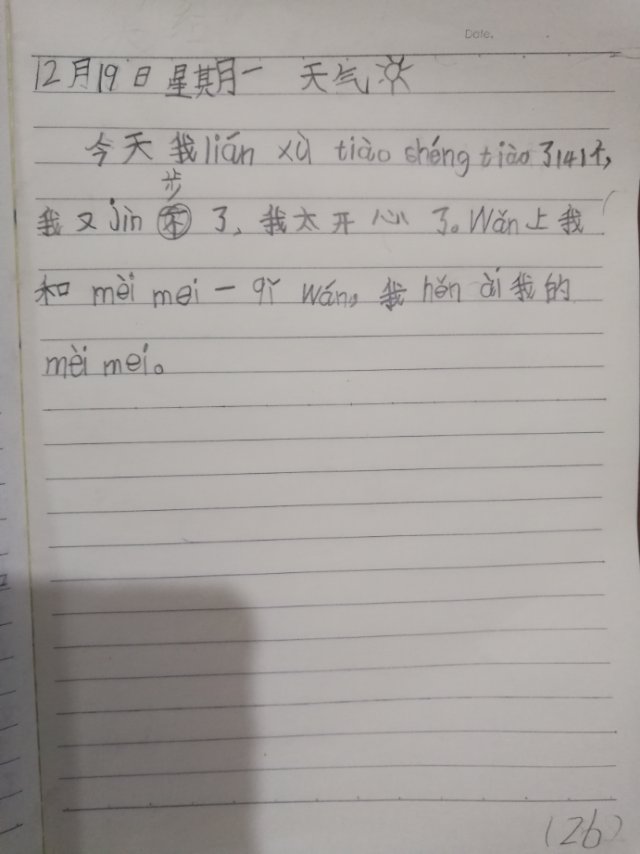 Date.
12月19日 星期一 天气☀
今天我lián xù tiào shéng tiào了141个,
步
我又jìn 不 了,我太开心了。Wǎn上我
和 mèi mei 一 qǐ wán, 我 hěn ài 我的
mèi mei。
(26)